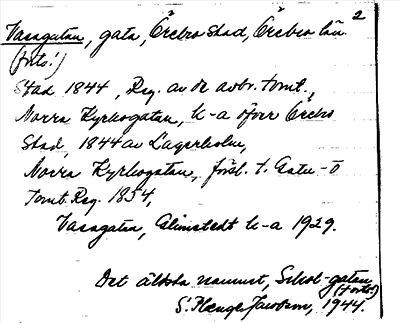 2
Vasagatan, gata, Örebro stad, Örebro län.
(forts.)
Stad 1844, Reg. av de avbr. tomt.,
Norra Kyrkogatan, k-a öfver Örebro
Stad, 1844 av Lagerholm,
Norra Kyrkogatan, försl. t. Gatu- o
Tomt. Reg. 1854,
Vasagatan, Almstedt k-a 1929.
Det äldsta namnet, Skol-gatan
(forts.)
S. Plænge Jacobson, 1944.